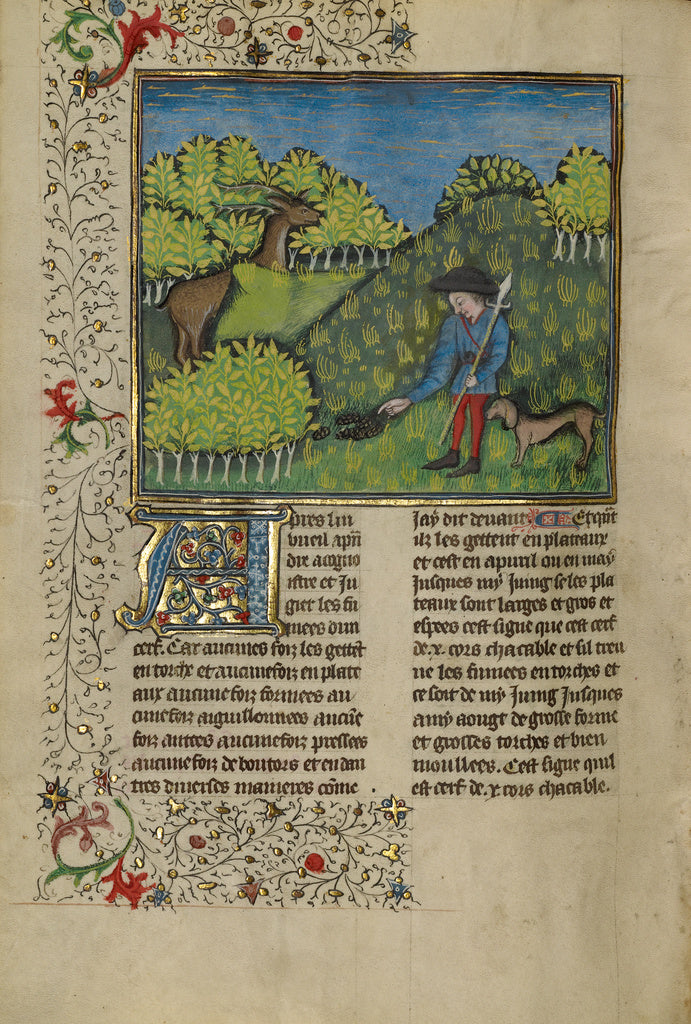 Apres luy
vueil apñ
dre a cogno
istre et Ju
gier les fu
mees dun
cerf. Car aucunes foiz les gettēt
en torche et aucunefoiz en plate
aux aucunefoiz formees au
cunefoiz aiguillonnees aucūe
foiz antees aucunefoiz pressees
aucunefoiz de boutors et en dau
tres diuerses manieres cōme
Jay dit deuant Et qñt
ilz les gettent en plateaux
et cest en apuril ou en may
Jusques my Juing se les pla
teaux sont larges et gros et
espees cest signe que cest cerf
de .x. cors chacable et sil treu
ue les fumees en torches et
ce soit de my Juing Jusques
a my aougt de grosse forme
et grosses torches et bien
moullees. Cest signe quil
est cerf de .x cors chacable.